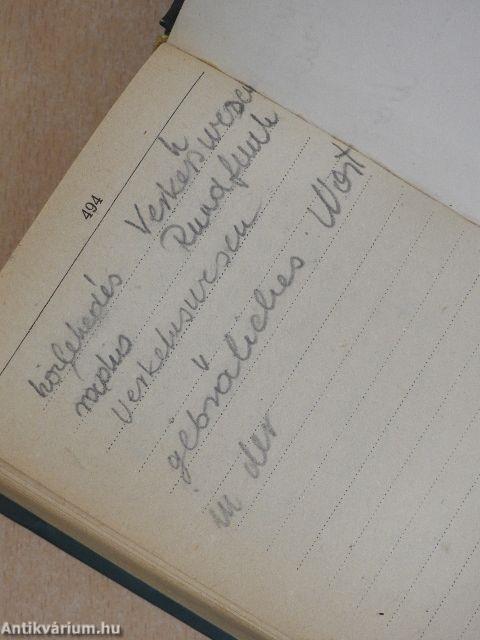 494
közlekedés Verkehrswesen
rádió Rundfunk
Verkehrswesen
gebräuliches Wort
in der
Antikvárium.hu